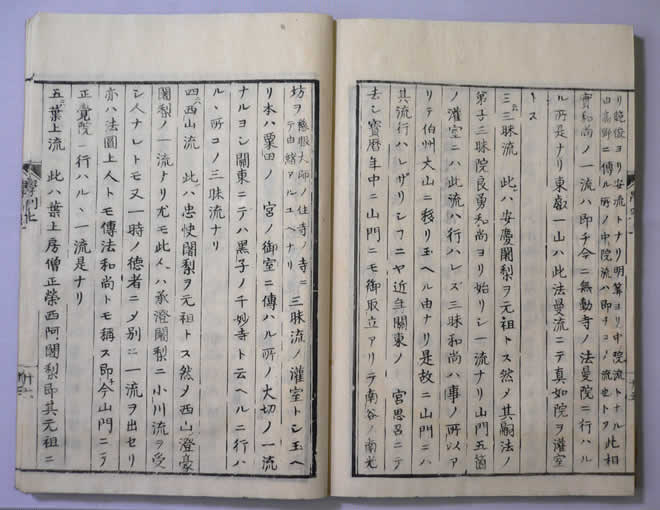 ヨリ安流トナリ明算ヨリ中院流トナル此相
高野ニ傳ル所ノ中院流ハ即チコノ流也
實和尚ノ一流ハ即チ今ニ無動寺ノ法曼院ニ行ハル
ル所是ナリ東叡一山ハ此法曼流ニテ真如院ヲ灌室
トス
三ニ三昧流 此ハ安慶闍梨ヲ元祖トス然メ其嗣法ノ
第子三昧院良勇和尚ヨリ始リシ一流ナリ山門五箇
ノ灌室ニハ此流ハ行ハレズ三昧和尚ハ事ノ所以ア
リテ伯州大山ニ移リ玉ヘル由ナリ是故ニ山門ニハ
其流行ハレザリシフニヤ近年關東ノ 宮思召ニテ
去シ寶暦年中ニ山門ニモ御取立アリテ南谷ノ南光
坊ヲ慈眼大師ノ住寺ノ寺ニテ由緒アルユヘナリ 三昧流ノ灌室トシ玉ヘ
リ本ハ粟田ノ 宮ノ御室ニ傳ハル所ノ大切ノ一流
ナルヨシ關東ニテハ黒子ノ千妙寺ト云ヘルニ行ハ
ル、所コノ三昧流ナリ
四ニ西山流 此ハ忠快闍梨ヲ元祖トス然メ西山澄豪
闍梨ノ一流ナリ尤モ此人ハ承澄闍梨ニ小川流ヲ受
シ人ナレトモ又一時ノ德者ニメ別ニ一流ヲ出セリ
亦ハ法圓上人トモ傳法和尚トモ稱ス即チ今山門ニテ
正覺院ニ行ハル、一流是ナリ
五ニ葉上流 此ハ葉上房僧正榮西阿闍梨即其元祖ニ